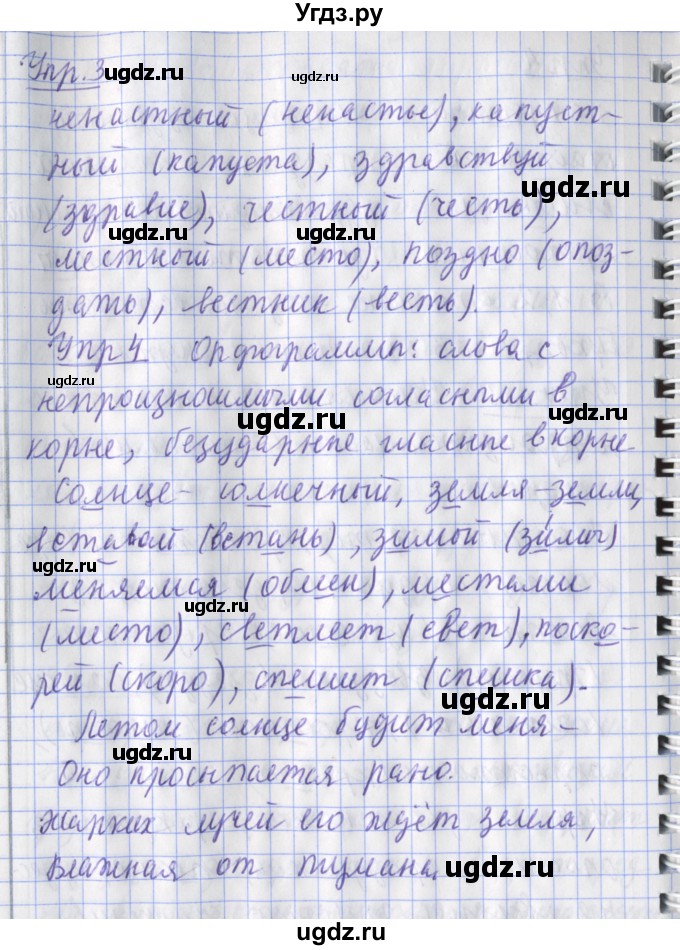 Угдз.ру
Упр. 3
ненастный (ненастье), капуст-
ный (капуста), здравствуй
(здравие), честный (честь),
местный (место), поздно (опоз-
дать), вестник (весть).
Упр 4 Орфограммы: слова с
непроизносимыми согласными в
корне, безударные гласные в корне
Солнце - солнечный, земля - земли,
вставай (встань), зимой (зи́мы)
меняемся (обмен), местами
(место), светлеет (свет), поско-
рей (скоро), спешит (спешка).
Летом солнце будит меня -
Оно просыпается рано.
Жарких лучей его ждёт земля,
Влажная от тумана.
ugdz.ru
ugdz.ru
ugdz.ru
ugdz.ru
ugdz.ru
ugdz.ru
ugdz.ru
ugdz.ru
ugdz.ru
ugdz.ru
ugdz.ru
ugdz.ru
ugdz.ru
ugdz.ru